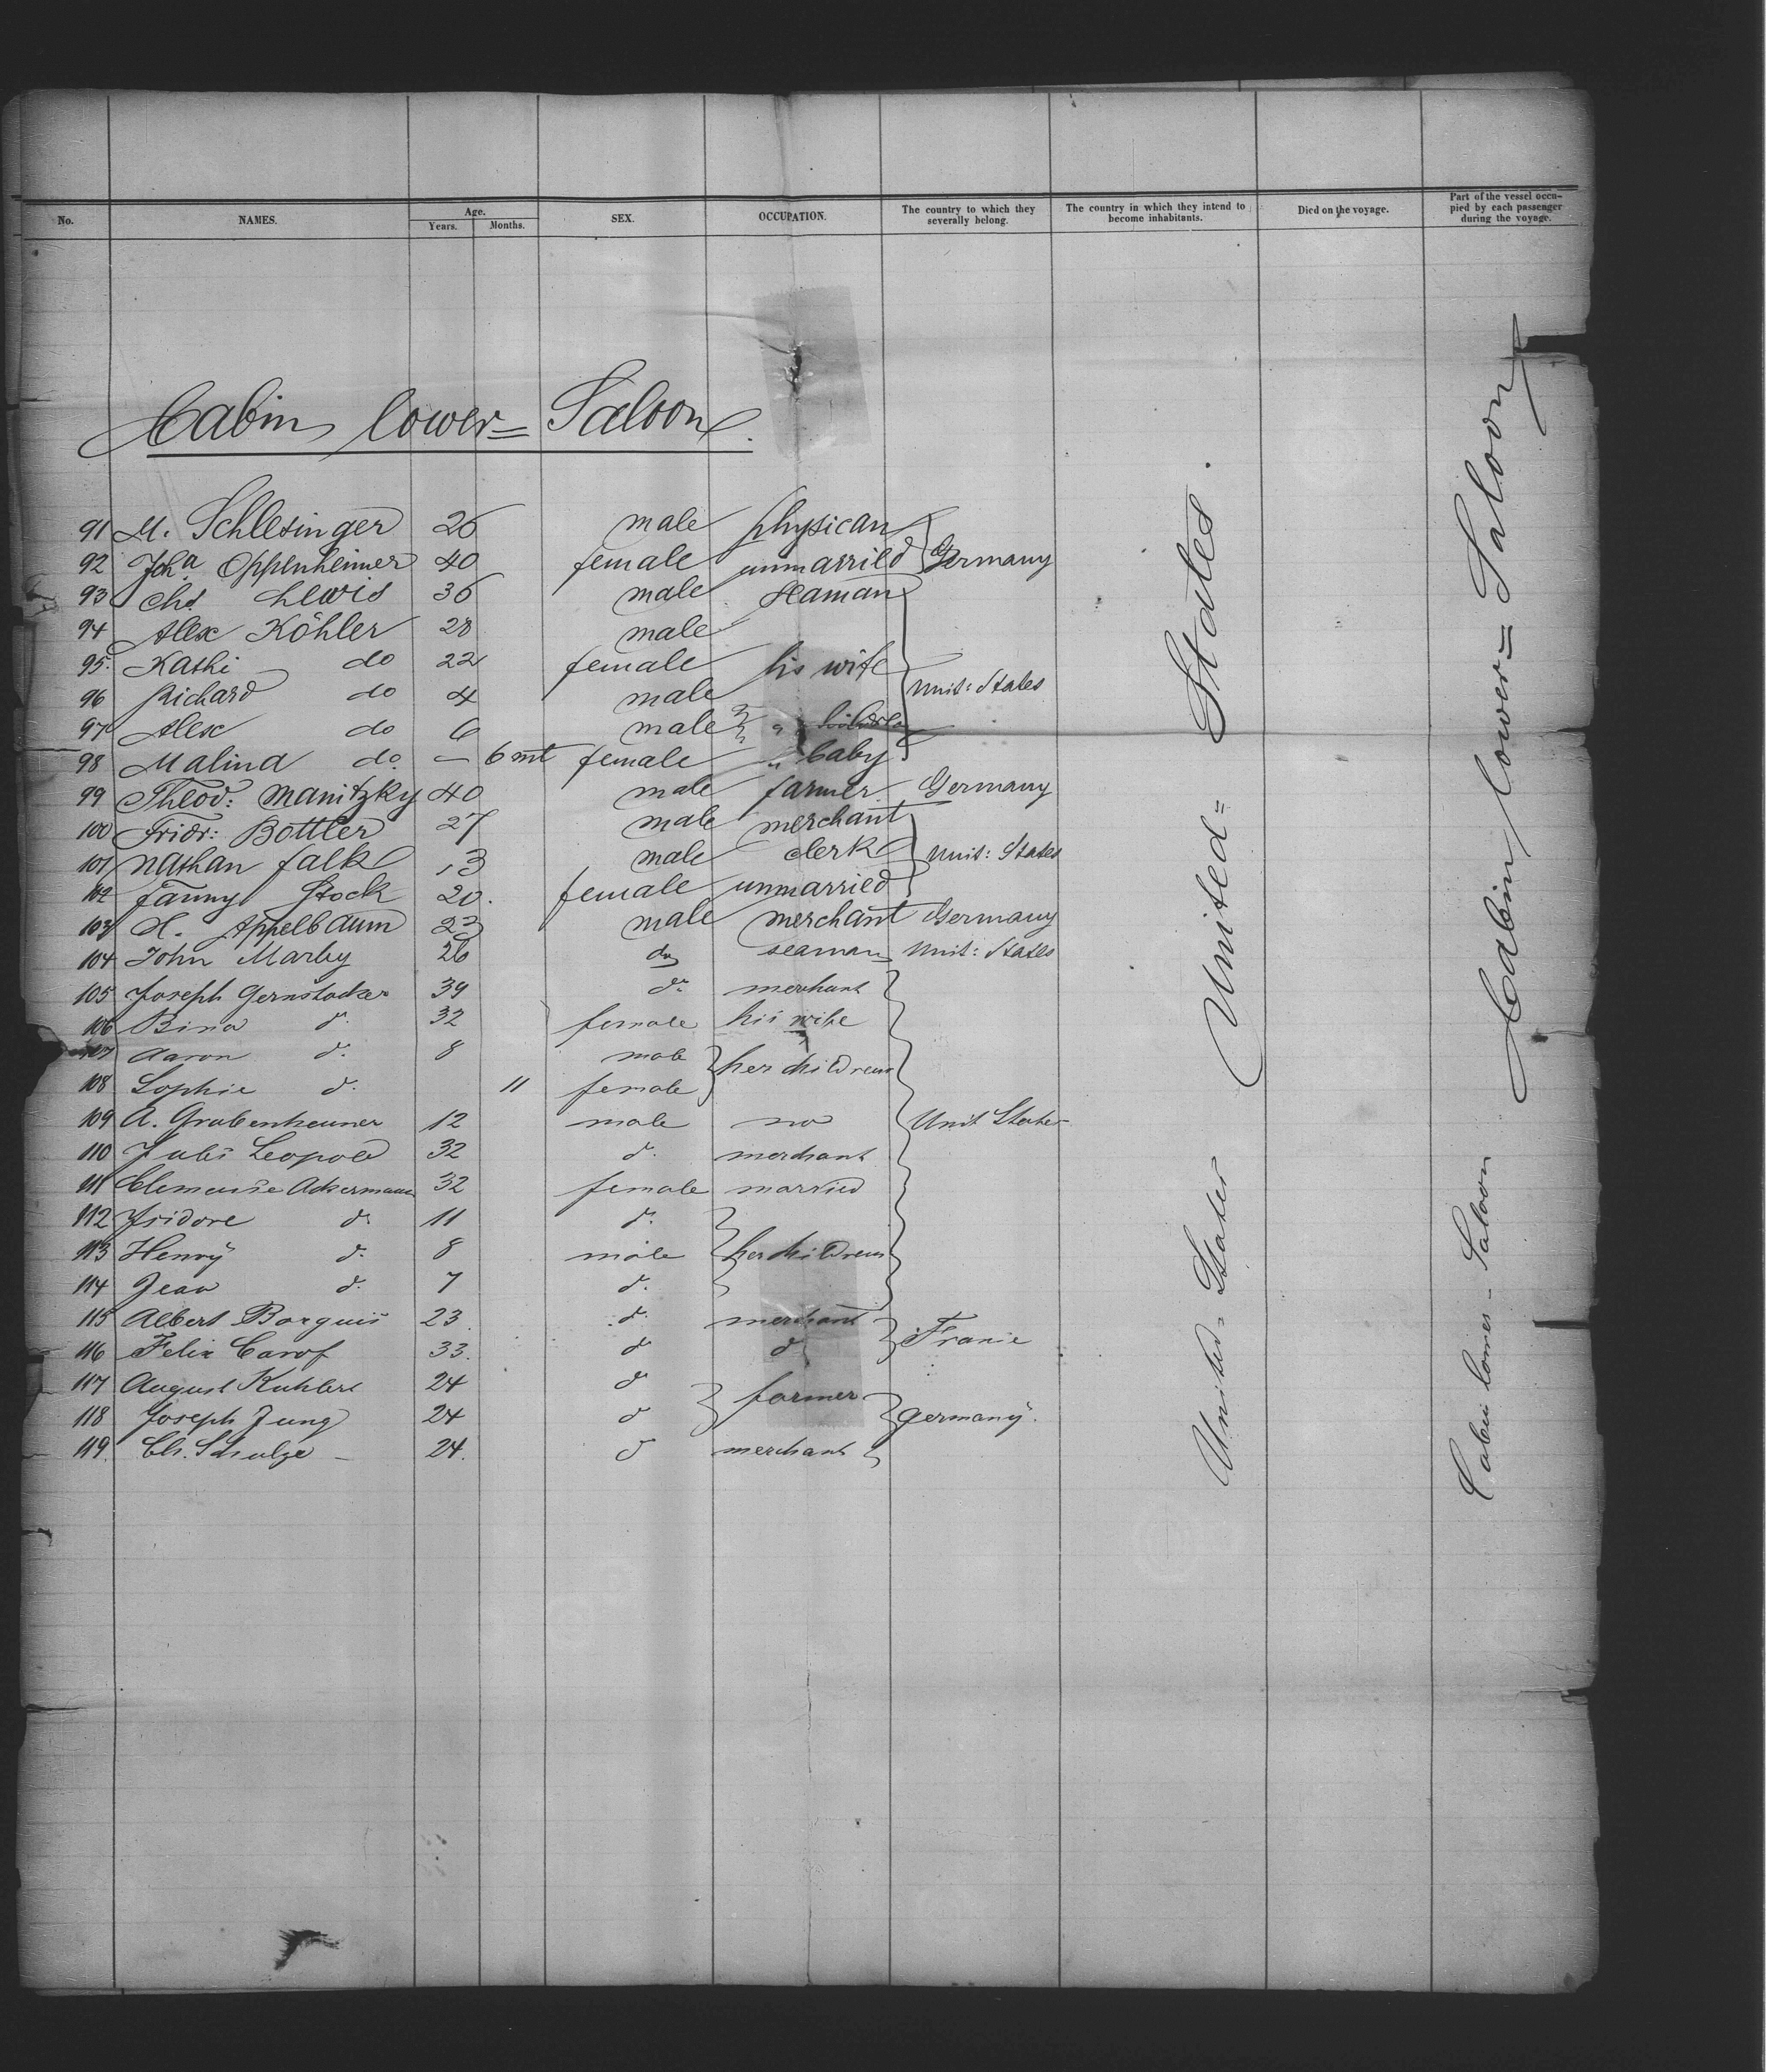 No. NAMES. Age. Years. Months. SEX. OCCUPATION. The country to which they severally belong. The country in which they intend to become inhabitants. Died on the voyage. Part of the vessel occupied by each passenger during the voyage.
Cabin lower= Saloon.
91 M. Schlesinger 26 male physican
92 Joha Oppenheimer 40 female unmarried Germany
93 Chs. Lewis 36 male seaman
94 Alex Köhler 28 male
95. Kathi do 22 female his wife
96 Richard do 4 male Unit: States
97 Alex do 6 male
98 Malind do. — 6 mt female " baby
99 Theod: Manitzky 40 male farmer Germany
100 Fridr: Bottler 27 male merchant
101 Nathan Falk 13 male clerk Unit: States
102 Fanny Stock 20. female unmarried
103 H. Appelbaum 23 male merchant Germany
104 John Marby 26 do seaman Unit: States
105 Joseph Gernstacker 39 do. merchant
106 Bina d. 32 female his wife
107 Aaron d. 8 male her children
108 Sophie d. 11 female
109 A. Grabenheimer 12 male no Unit States
110 Jules Leopold 32 d. merchant
111 Clemense Ackermann 32 female married
112 Isidore d. 11 d.
113 Henry d. 8 male her children
114 Jean d. 7 d.
115 Albert Borguis 23. d. merchant
116 Felix Carof 33. d d France
117 August Kuhlert 24 d farmer
118 Joseph Jung 24 d Germany.
119. Ch. Schulze — 24. d merchant
United= States.
United= States
Cabin lower= Saloon
Cabin lower - Saloon